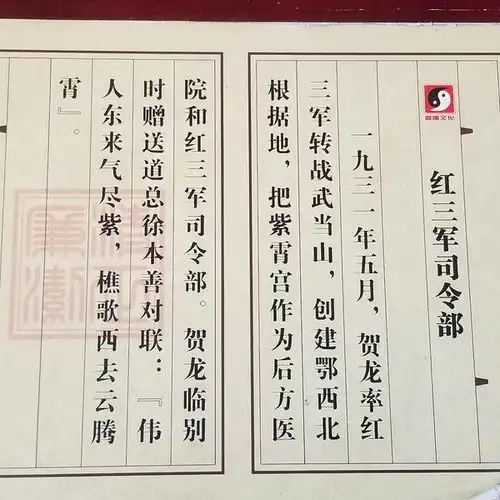 道源文化
红三军司令部
一九三一年五月，贺龙率红
三军转战武当山，创建鄂西北
根据地，把紫霄宫作为后方医
院和红三军司令部。贺龙临别
时赠送道总徐本善对联：『伟
人东来气尽紫，樵歌西去云腾
霄』。